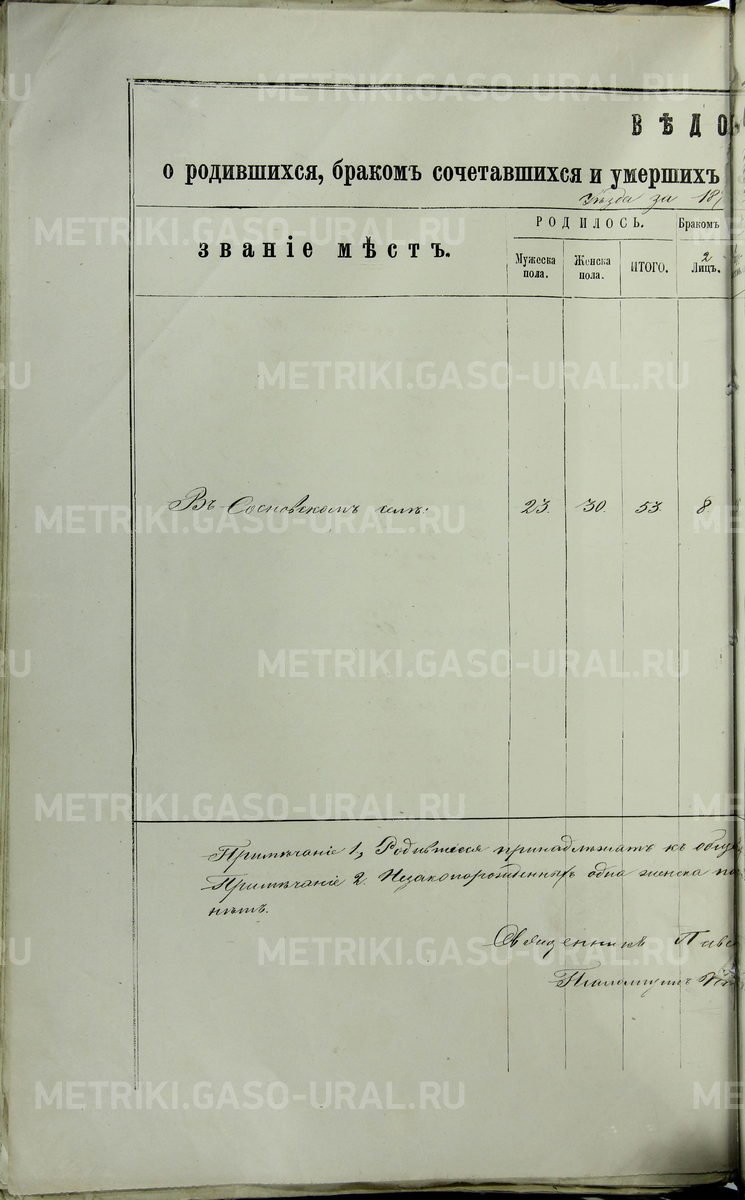 ВѢДО
о родившихся, бракомъ сочетавшихся и умершихъ
уѣзда за 187
званіе мѣстъ.
РОДИЛОСЬ.
Бракомъ
Мужеска пола.
Женска пола.
ИТОГО.
2 Лицъ.
Въ Сосновскомъ селѣ.
23. 30. 53. 8
Примѣчаніе 1, Родившіеся принадлежатъ къ
Примѣчаніе 2. Незаконорожденныхъ одна женска по
нѣтъ.
Священникъ Павел
Псаломщикъ
METRIKI.GASO-URAL.RU